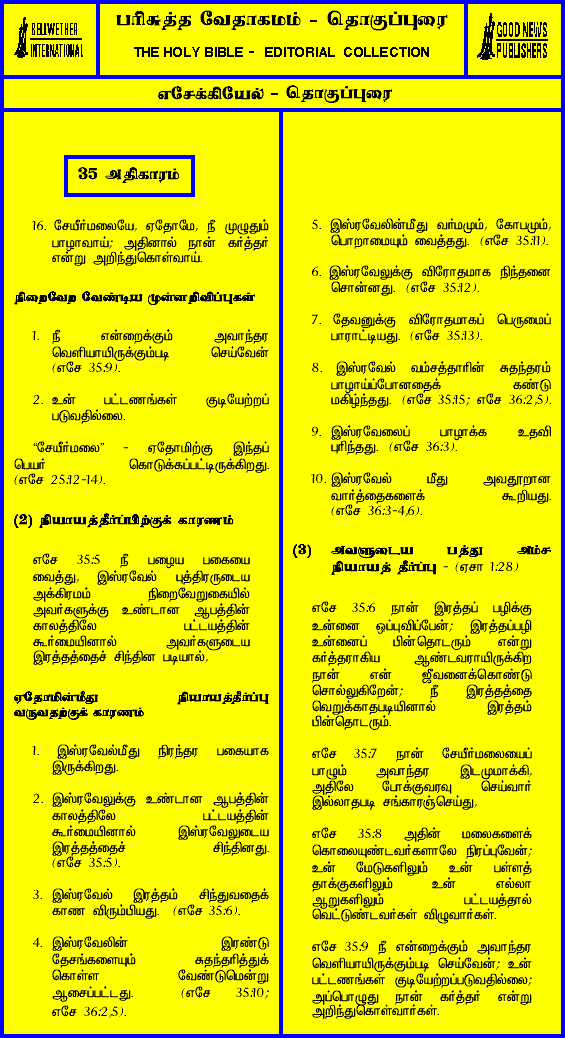 BELLWETHER
INTERNATIONAL
பரிசுத்த வேதாகமம் - தொகுப்புரை
THE HOLY BIBLE - EDITORIAL COLLECTION
GOOD NEWS
PUBLISHERS
எசேக்கியேல் - தொகுப்புரை
35 அதிகாரம்
16. சேயீர்மலையே, ஏதோமே, நீ முழுதும்
பாழாவாய்; அதினால் நான் கர்த்தர்
என்று அறிந்துகொள்வாய்.
நிறைவேற வேண்டிய முன்னறிவிப்புகள்
1. நீ என்றைக்கும் அவாந்தர
வெளியாயிருக்கும்படி செய்வேன்
(எசே 35:9).
2. உன் பட்டணங்கள் குடியேற்றப்
படுவதில்லை.
"சேயீர்மலை" - ஏதோமிற்கு இந்தப்
பெயர் கொடுக்கப்பட்டிருக்கிறது.
(எசே 25:12-14).
(2) நியாயத்தீர்ப்பிற்குக் காரணம்
எசே 35:5 நீ பழைய பகையை
வைத்து, இஸ்ரவேல் புத்திரருடைய
அக்கிரமம் நிறைவேறுகையில்
அவர்களுக்கு உண்டான ஆபத்தின்
காலத்திலே பட்டயத்தின்
கூர்மையினால் அவர்களுடைய
இரத்தத்தைச் சிந்தின படியால்,
ஏதோமின்மீது நியாயத்தீர்ப்பு
வருவதற்குக் காரணம்
1. இஸ்ரவேல்மீது நிரந்தர பகையாக
இருக்கிறது.
2. இஸ்ரவேலுக்கு உண்டான ஆபத்தின்
காலத்திலே பட்டயத்தின்
கூர்மையினால் இஸ்ரவேலுடைய
இரத்தத்தைச் சிந்தினது.
(எசே 35:5).
3. இஸ்ரவேல் இரத்தம் சிந்துவதைக்
காண விரும்பியது. (எசே 35:6).
4. இஸ்ரவேலின் இரண்டு
தேசங்களையும் சுதந்தரித்துக்
கொள்ள வேண்டுமென்று
ஆசைப்பட்டது. (எசே 35:10;
எசே 36:2,5).
5. இஸ்ரவேலின்மீது வர்மமும், கோபமும்,
பொறாமையும் வைத்தது. (எசே 35:11).
6. இஸ்ரவேலுக்கு விரோதமாக நிந்தனை
சொன்னது. (எசே 35:12).
7. தேவனுக்கு விரோதமாகப் பெருமைப்
பாராட்டியது. (எசே 35:13).
8. இஸ்ரவேல் வம்சத்தாரின் சுதந்தரம்
பாழாய்ப்போனதைக் கண்டு
மகிழ்ந்தது. (எசே 35:15; எசே 36:2,5).
9. இஸ்ரவேலைப் பாழாக்க உதவி
புரிந்தது. (எசே 36:3).
10. இஸ்ரவேல் மீது அவதூறான
வார்த்தைகளைக் கூறியது.
(எசே 36:3-4,6).
(3) அவளுடைய பத்து அம்ச
நியாயத் தீர்ப்பு - (ஏசா 1:28)
எசே 35:6 நான் இரத்தப் பழிக்கு
உன்னை ஒப்புவிப்பேன்; இரத்தப்பழி
உன்னைப் பின்தொடரும் என்று
கர்த்தராகிய ஆண்டவராயிருக்கிற
நான் என் ஜீவனைக்கொண்டு
சொல்லுகிறேன்; நீ இரத்தத்தை
வெறுக்காதபடியினால் இரத்தம்
பின்தொடரும்.
எசே 35:7 நான் சேயீர்மலையைப்
பாழும் அவாந்தர இடமுமாக்கி,
அதிலே போக்குவரவு செய்வார்
இல்லாதபடி சங்காரஞ்செய்து,
எசே 35:8 அதின் மலைகளைக்
கொலையுண்டவர்களாலே நிரப்புவேன்;
உன் மேடுகளிலும் உன் பள்ளத்
தாக்குகளிலும் உன் எல்லா
ஆறுகளிலும் பட்டயத்தால்
வெட்டுண்டவர்கள் விழுவார்கள்.
எசே 35:9 நீ என்றைக்கும் அவாந்தர
வெளியாயிருக்கும்படி செய்வேன்; உன்
பட்டணங்கள் குடியேற்றப்படுவதில்லை;
அப்பொழுது நான் கர்த்தர் என்று
அறிந்துகொள்வார்கள்.